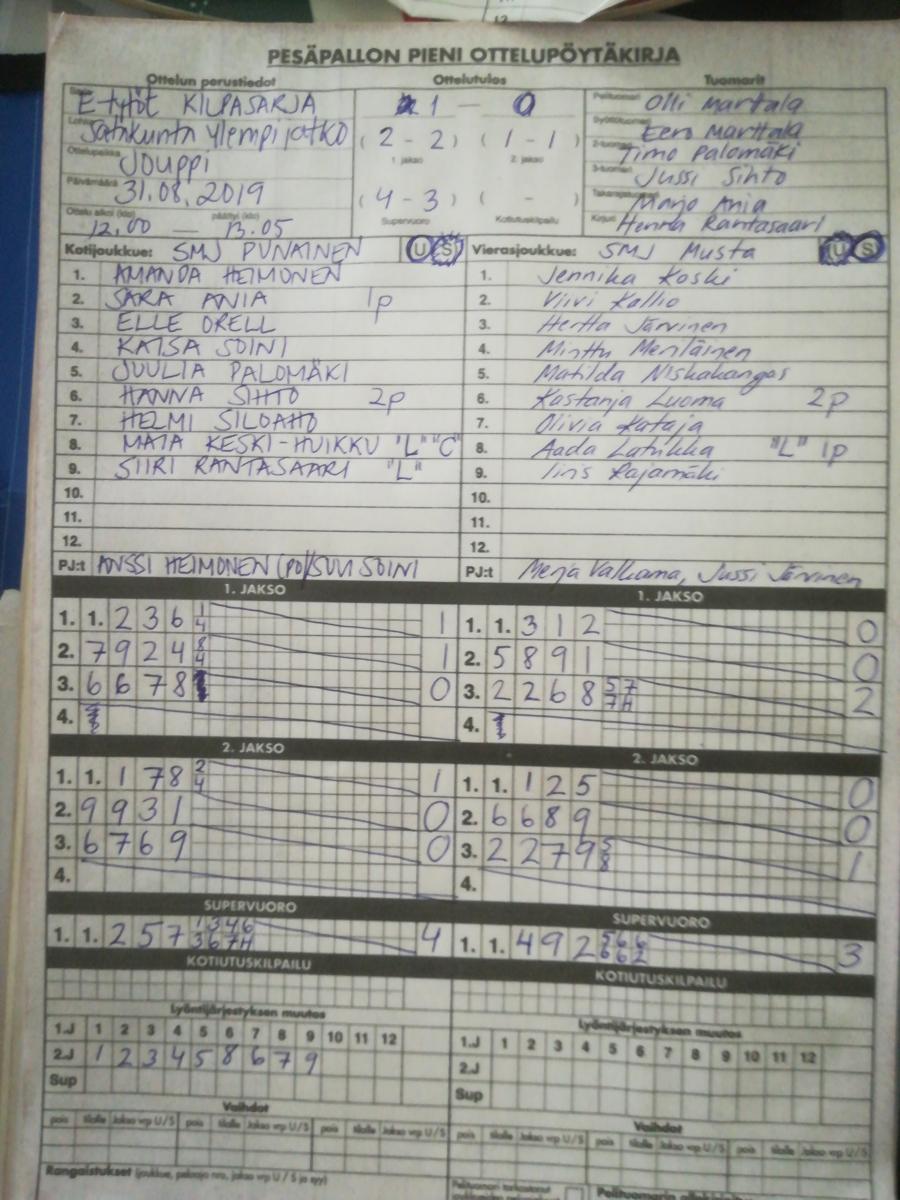 PESÄPALLON PIENI OTTELUPÖYTÄKIRJA
Ottelun perustiedot
E-tytöt KILPASARJA
Satakunta Ylempi jatko
Ottelupaikka Jouppi
Päivämäärä 31.08.2019
Ottelu alkoi (klo) päättyi (klo)
12.00 — 13.05
Ottelutulos
1 — 0
(2 - 2) (1 - 1)
1. jakso 2. jakso
(4 - 3) ( - )
Supervuoro Kotiutuskilpailu
Tuomarit
Pelituomari Olli Marttala
Syöttötuomari Eero Marttala
2-tuomari Timo Palomäki
3-tuomari Jussi Sihto
Takarajatuomari Marjo Ania
Kirjuri Henna Rantasaari
Kotijoukkue: SMJ PUNAINEN U S
1. AMANDA HEIMONEN
2. SARA ANIA 1p
3. ELLE ORELL
4. KAISA SOINI
5. JUULIA PALOMÄKI
6. HANNA SIHTO 2p
7. HELMI SILOAHO
8. MAIA KESKI-HUIKKU "L" "C"
9. SIIRI RANTASAARI "L"
10.
11.
12.
PJ:t ANSSI HEIMONEN (PO)/SUVI SOINI
Vierasjoukkue: SMJ Musta U S
1. Jennika Koski
2. Viivi Kallio
3. Hertta Järvinen
4. Minttu Meriläinen
5. Matilda Niskakangas
6. Kastanja Luoma 2p
7. Olivia Kataja
8. Aada Latukka "L" 1p
9. Iiris Rajamäki
10.
11.
12.
PJ:t Merja Valkama, Jussi Järvinen
1. JAKSO
1. 1. 2 3 6 1 4 1
2. 7 9 2 4 8 4 1
3. 6 6 7 8 0
4.
1. JAKSO
1. 1. 3 1 2 0
2. 5 8 9 1 0
3. 2 2 6 8 5 7 7 H 2
4.
2. JAKSO
1. 1. 1 7 8 2 4 1
2. 9 9 3 1 0
3. 6 7 6 9 0
4.
2. JAKSO
1. 1. 1 2 5 0
2. 6 6 8 9 0
3. 2 2 7 9 5 8 1
4.
SUPERVUORO
1. 1. 2 5 7 1 3 4 6 3 6 7 H 4
SUPERVUORO
1. 1. 4 9 2 5 6 6 6 6 2 3
KOTIUTUSKILPAILU
KOTIUTUSKILPAILU
Lyöntijärjestyksen muutos
1.J 1 2 3 4 5 6 7 8 9 10 11 12
2.J 1 2 3 4 5 8 6 7 9
Sup
Lyöntijärjestyksen muutos
1.J 1 2 3 4 5 6 7 8 9 10 11 12
2.J
Sup
Vaihdot
pois tilalle Jakso vrp U/S pois tilalle Jakso vrp U/S pois tilalle Jakso vrp U/S
Vaihdot
pois tilalle Jakso vrp U/S pois tilalle Jakso vrp U/S pois tilalle Jakso vrp U/S
Rangaistukset (joukkue, pelaaja nro, jakso vrp U / S ja syy)